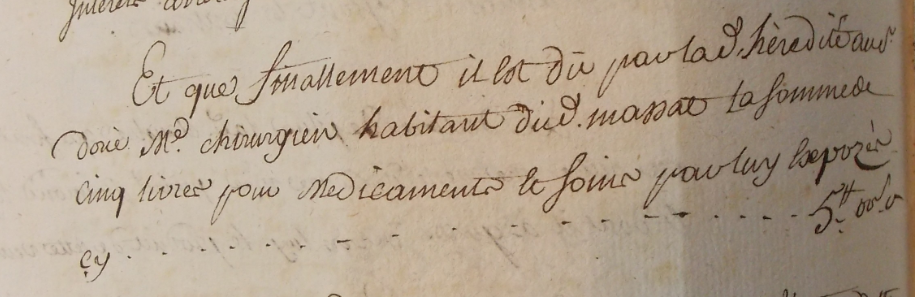 Et que finallement il est dû par lad. hérédité au sr.
Doue Me. chirurgien habitant dud. massat la somme de
cinq livres pour medicaments et soins par luy exposés
cy . . . . . . . . . . . . 5tt